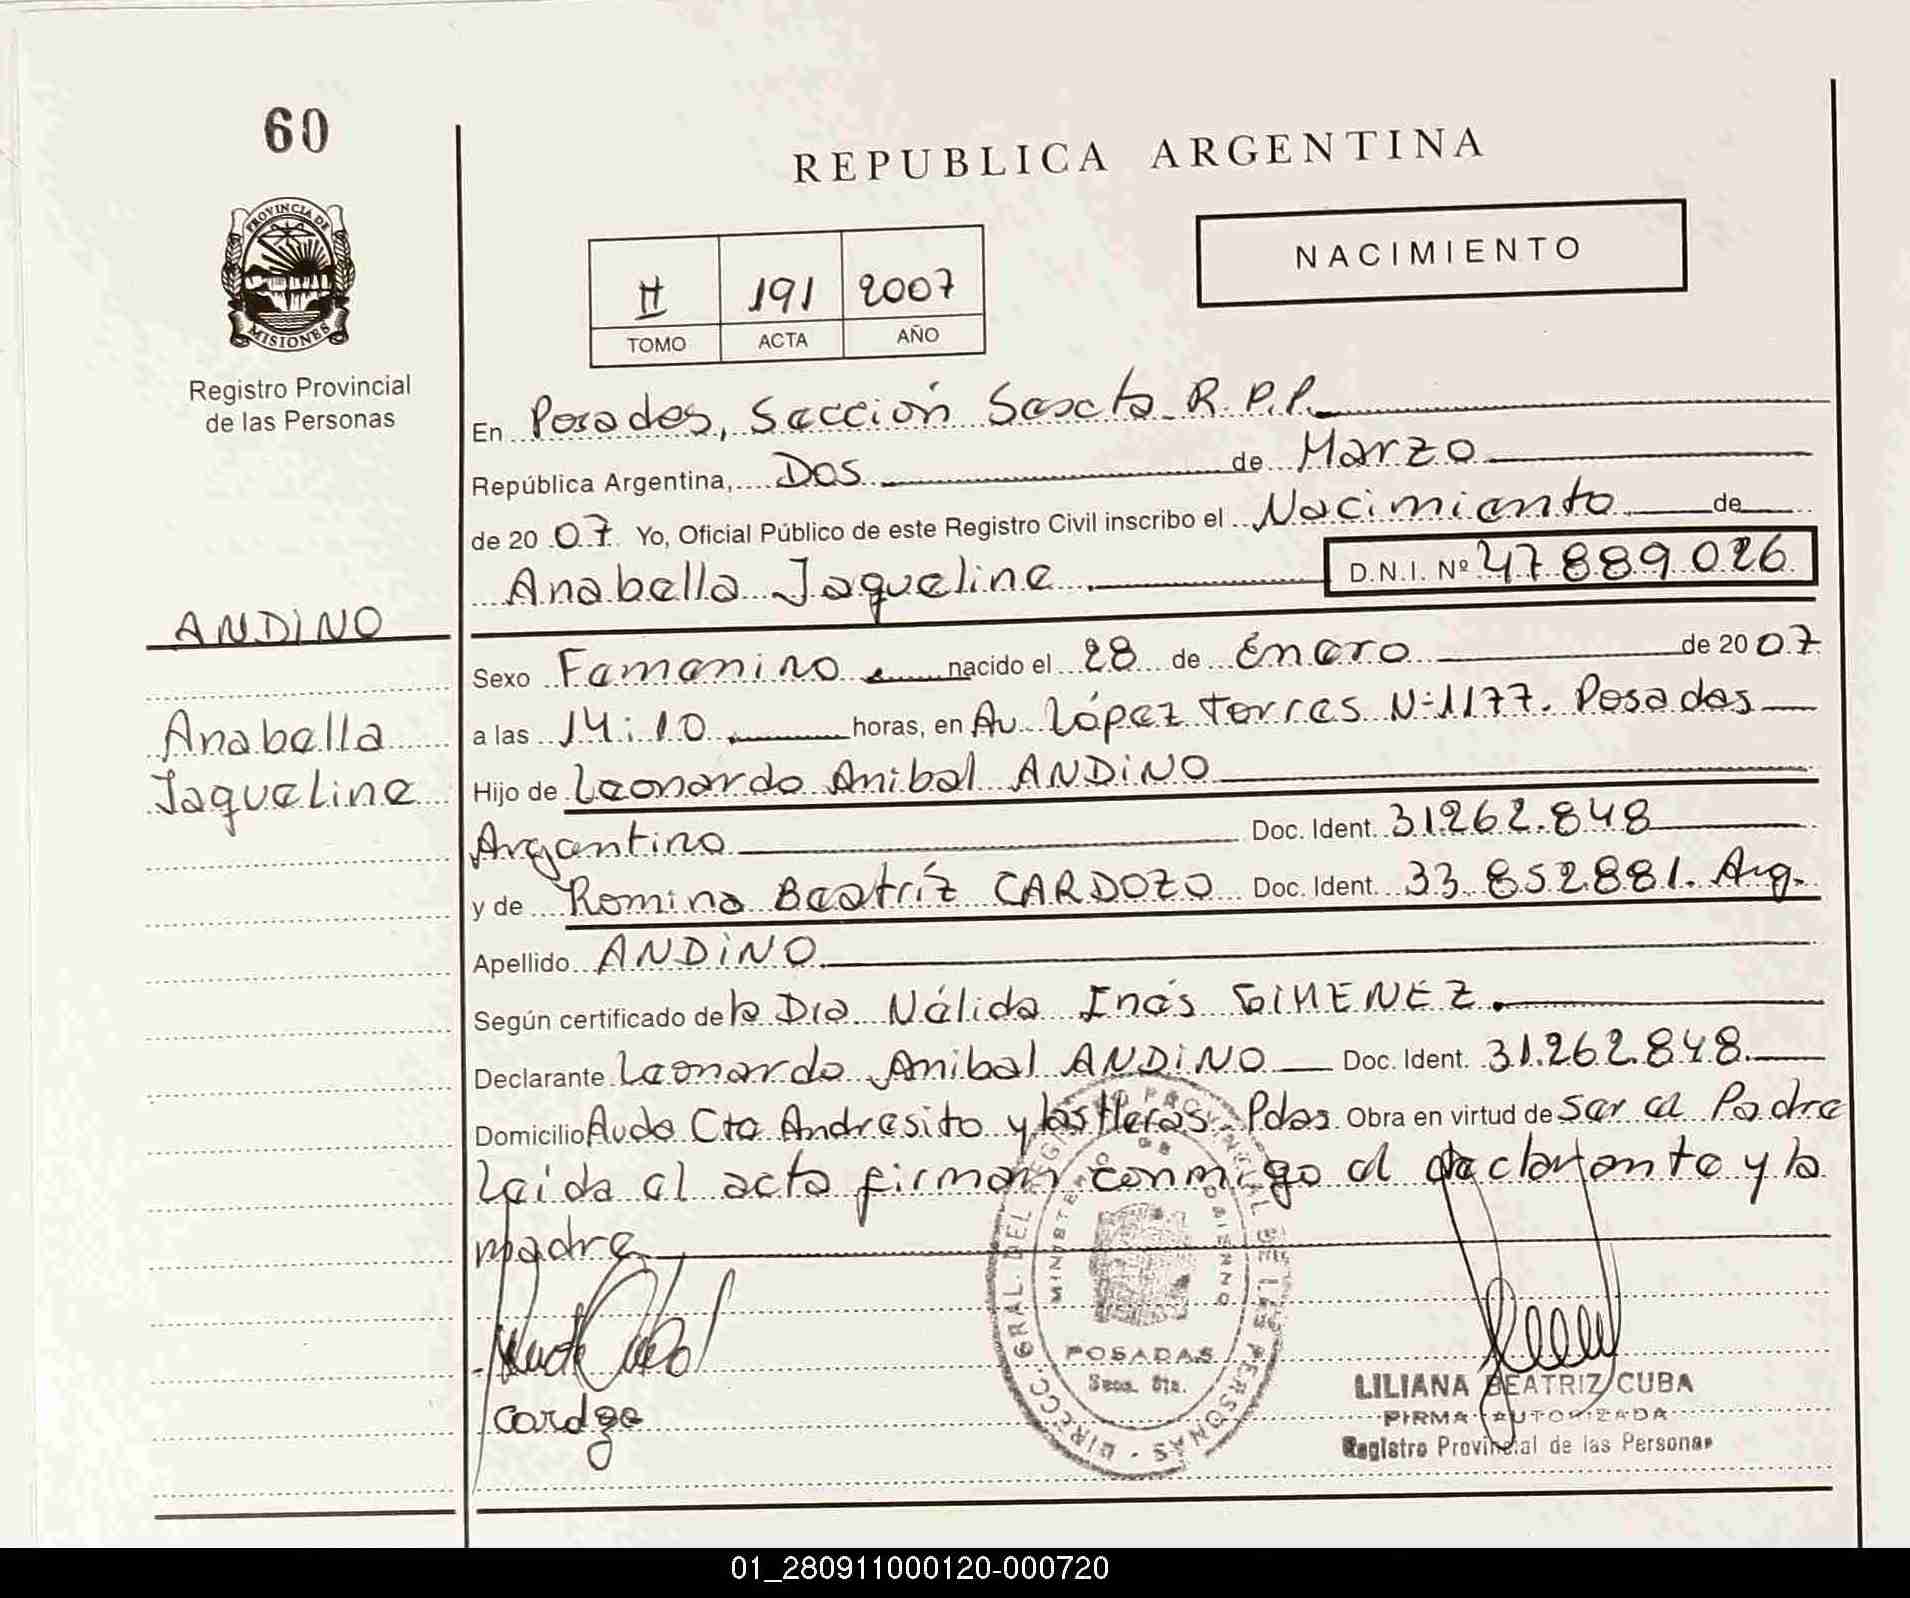 60
REPUBLICA ARGENTINA
PROVINCIA DE
MISIONES
NACIMIENTO
II 191 2007
TOMO ACTA AÑO
Registro Provincial
de las Personas
En Posadas, Sección Sexta R.P.P.
República Argentina, Dos de Marzo
de 2007 Yo, Oficial Público de este Registro Civil inscribo el Nacimiento de
Anabella Jaqueline D.N.I. Nº 47889026
ANDINO
Sexo Femenino nacido el 28 de Enero de 2007
Anabella
Jaqueline
a las 14:10 horas, en Av. López Torres Nº 1177. Posadas
Hijo de Leonardo Anibal ANDINO
Argentino Doc. Ident. 31.262.848
y de Romina Beatríz CARDOZO Doc. Ident. 33.852881. Arg.
Apellido ANDINO
Según certificado de la Dra Nélida Inés GIMENEZ.
Declarante Leonardo Anibal ANDINO Doc. Ident. 31.262.848.
Domicilio Avda Cte Andresito y las Heras. Pdas Obra en virtud de ser el Padre
Leída el acta firman conmigo el declarante y la
madre
DIRECC. GRAL. DEL REGISTRO PROVINCIAL DE LAS PERSONAS
MINISTERIO DE GOBIERNO
POSADAS
Secc. 6ta.
LILIANA BEATRIZ CUBA
FIRMA AUTORIZADA
Registro Provincial de las Personas
01_280911000120-000720